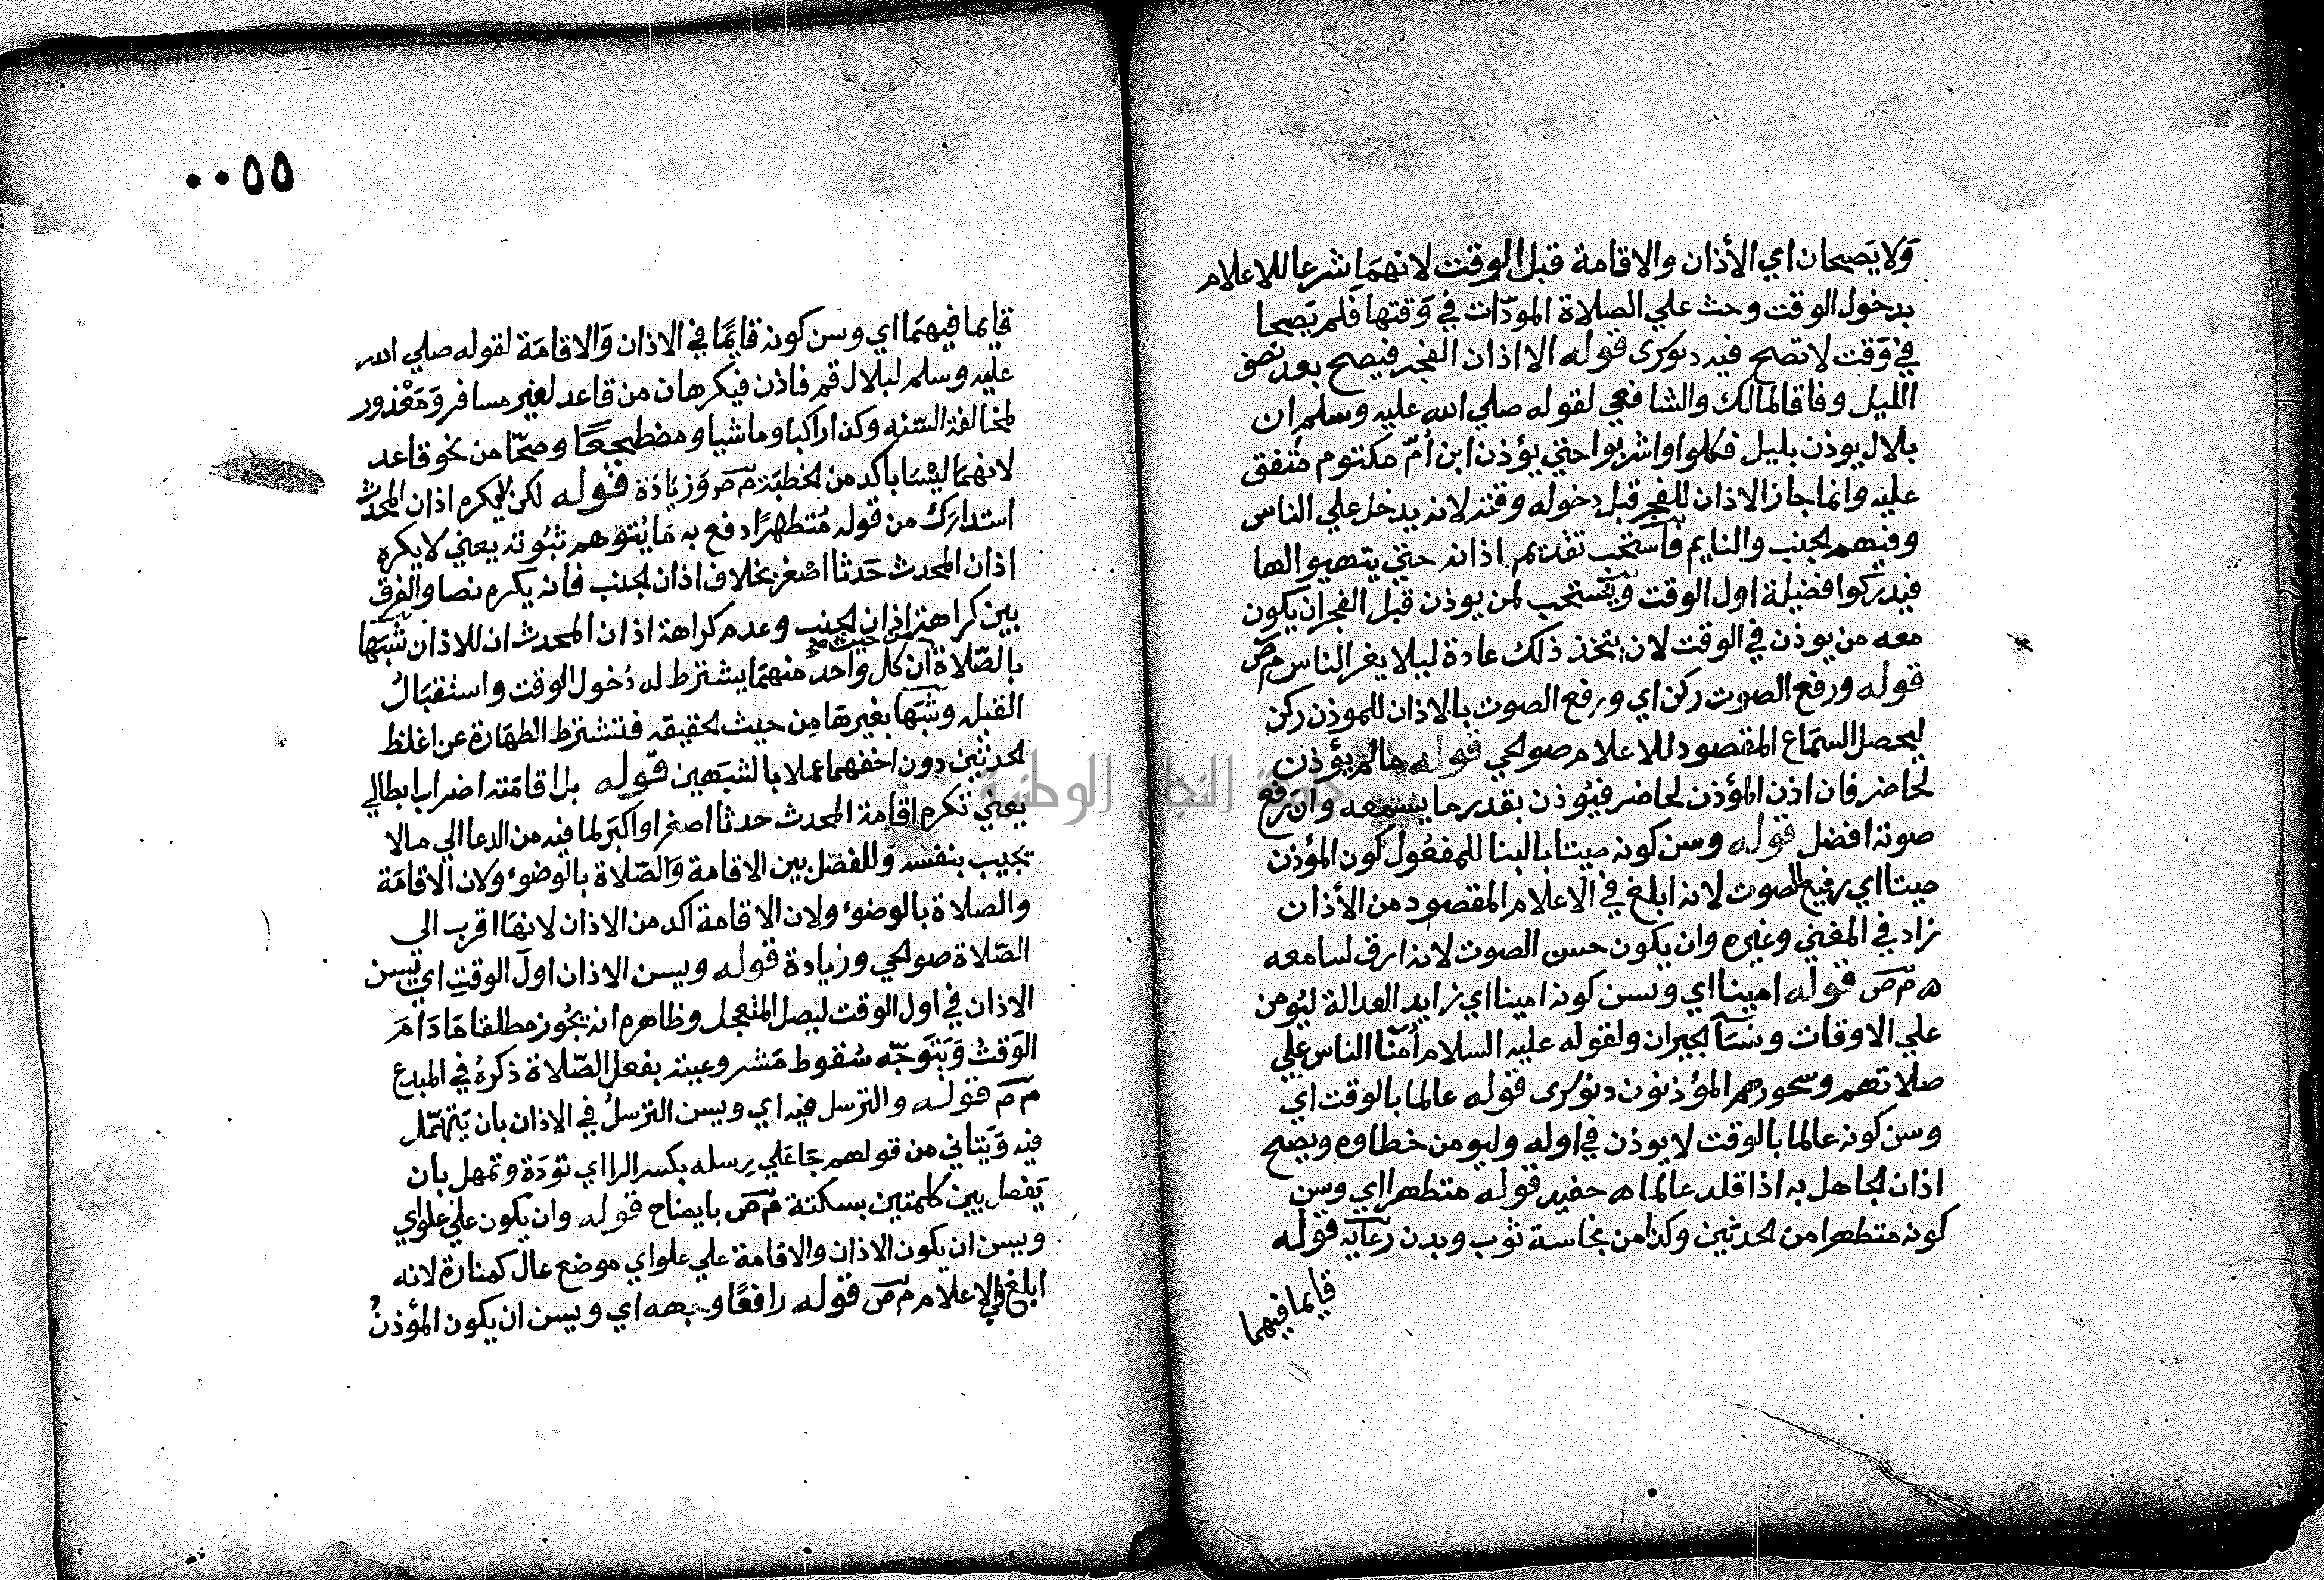 ولا يصحان اي الأذان والاقامة قبل الوقت لانهما شرعا للاعلام
بدخول الوقت وحث علي الصلاة المودّات في وقتها فلم يصحا
في وقت لا تصح فيه دنوكرى قوله الا اذان الفجر فيصح بعد نصف
الليل وفاقا لمالك والشافعي لقوله صلي الله عليه وسلم ان
بلال يوذن بليل فكلوا واشربوا حتي يؤذن ابن أمّ مكتوم متفق
عليه وانما جاز الاذان للفجر قبل دخوله وقته لانه يدخل علي الناس
وفيهم الجنب والنايم فاستحب تقديم اذانه حتي يتهيوا لها
فيدركوا فضيلة اول الوقت ويستحب لمن يوذن قبل الفجر ان يكون
معه من يوذن في الوقت لان يتخذ ذلك عادة ليلا يغر الناس م ص
قوله ورفع الصوت ركن اي ورفع الصوت بالاذان للموذن ركن
ليحصل السماع المقصود للاعلام صوالحي قوله مالم يؤذن
لحاضر فان اذن المؤذن لحاضر فيؤذن بقدر ما يسمعه وان رفع
صوته افضل قوله وسن كونه صيتا بالبنا للمفعول كون المؤذن
صيتا اي رفيع الصوت لانه ابلغ في الاعلام المقصود من الأذان
زاد في المغني وغيره وان يكون حسن الصوت لانه ارق لسامعه
ه م ص قوله امينا اي وسن كونه امينا اي زايد العدالة ليومن
علي الاوقات ونسآ الجيران ولقوله عليه السلام أمنآ الناس علي
صلاتهم وسحورهم المؤذنون دنوكرى قوله عالما بالوقت اي
وسن كونه عالما بالوقت لا يوذن في اوله وليومن خطاوه ويصح
اذان الجاهل به اذا قلد عالما ه حفيد قوله متطهرا اي وسن
كونه متطهرا من الحدثين وكذا من نجاسة ثوب وبدن رعايه قوله
قايما فيهما
٠٠٥٥
قايما فيهما اي وسن كونه قايمًا في الاذان والاقامة لقوله صلي الله
عليه وسلم لبلال قم فاذن فيكرهان من قاعد لغير مسافر ومعذور
لمخالفة السنه وكذا راكبا وماشيا ومضطجعًا وصحّا من نحو قاعد
لانهما ليسا باكد من الخطبة م ص وزيادة قوله لكن لا يكره اذان المحدث
استدارك من قوله متطهرًا دفع به ما يتوهم ثبوته يعني لا يكره
اذان المحدث حدثا اصغر بخلاف اذان الجنب فانه يكره نصا والفرق
بين كراهة اذان الجنب وعدم كراهة اذان المحدث ان للاذان شبها
بالصّلاة من حيث ان كل واحد منهما يشترط له دخول الوقت واستقبال
القبله وشبها بغيرها من حيث الحقيقه فتشترط الطهارة عن اغلظ
الحدثين دون اخفهما عملا بالشبهين قوله بل اقامته اضراب ابطالي
يعني تكره اقامة المحدث حدثا اصغر او اكبر لما فيه من الدعا الي مالا
يجيب بنفسه وللفصل بين الاقامة والصّلاة بالوضوء ولان الاقامة
والصلاة بالوضوء ولان الاقامة اكد من الاذان لانها اقرب الى
الصّلاة صوالحي وزيادة قوله ويسن الاذان اول الوقت اي يسن
الاذان في اول الوقت ليصل المتعجل وظاهره انه يجوز مطلقا ما دام
الوقت ويتوجّه سقوط مشروعيته بفعل الصّلاة ذكره في المبدع
م ص قوله والترسل فيه اي ويسن الترسل في الاذان بان يتمهّل
فيه ويتاني من قولهم جا علي رسله بكسر الرا اي تؤدة وتمهل بان
يفصل بين كلمتين بسكتة م ص بايضاح قوله وان يكون علي علو اي
ويسن ان يكون الاذان والاقامة علي علو اي موضع عال كمنارة لانه
ابلغ في الاعلام م ص قوله رافعًا وجهه اي ويسن ان يكون المؤذن